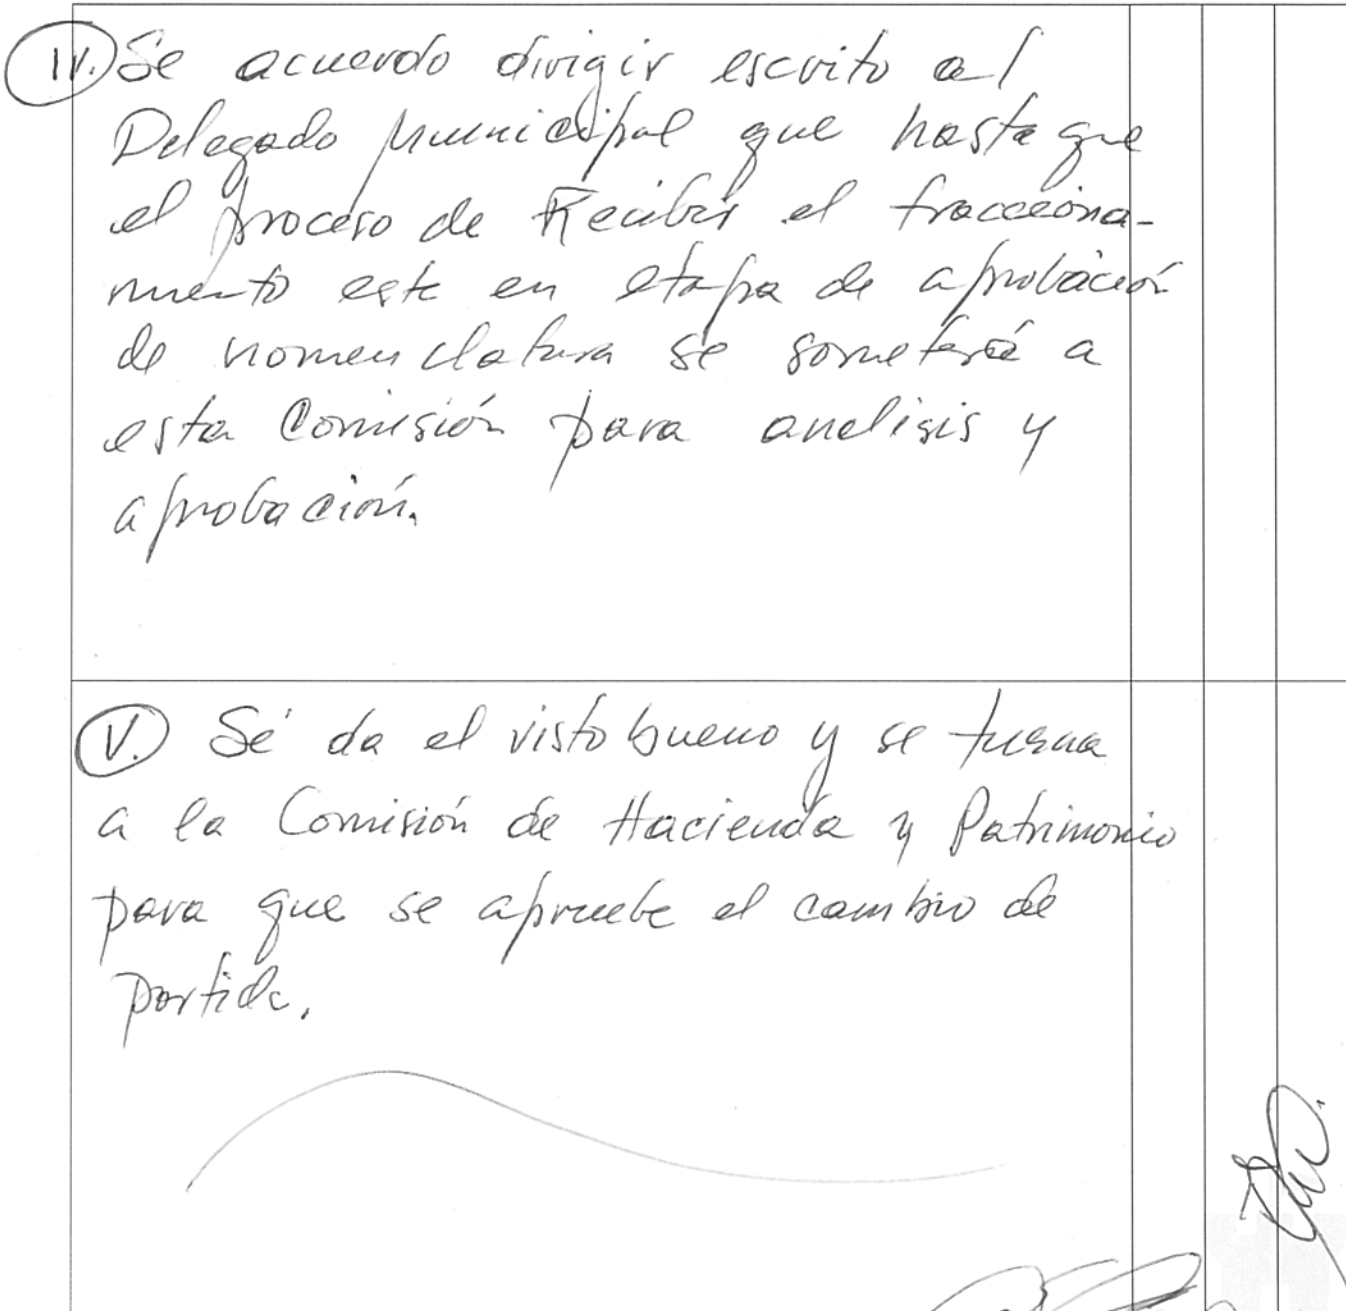 IV. Se acuerdo dirigir escrito al
Delegado Municipal que hasta que
el proceso de Recibir el fracciona-
miento este en etapa de aprobación
de nomenclatura se someterá a
esta Comisión para analisis y
aprobación.
V. Sé da el visto bueno y se turna
a la Comisión de Hacienda y Patrimonio
para que se apruebe el cambio de
partida.